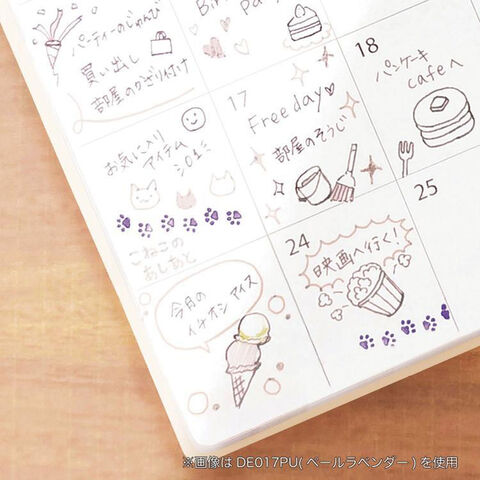 パーティーのじゅんび
買い出し
部屋のかざり付け
17
Free day♡
部屋のそうじ
18
パンケーキ
cafeへ
お気に入り
アイテム
こねこの
あしあと
24
映画へ行く!
25
今月の
イチオシ アイス
※画像は DE017PU( ペールラベンダー ) を使用